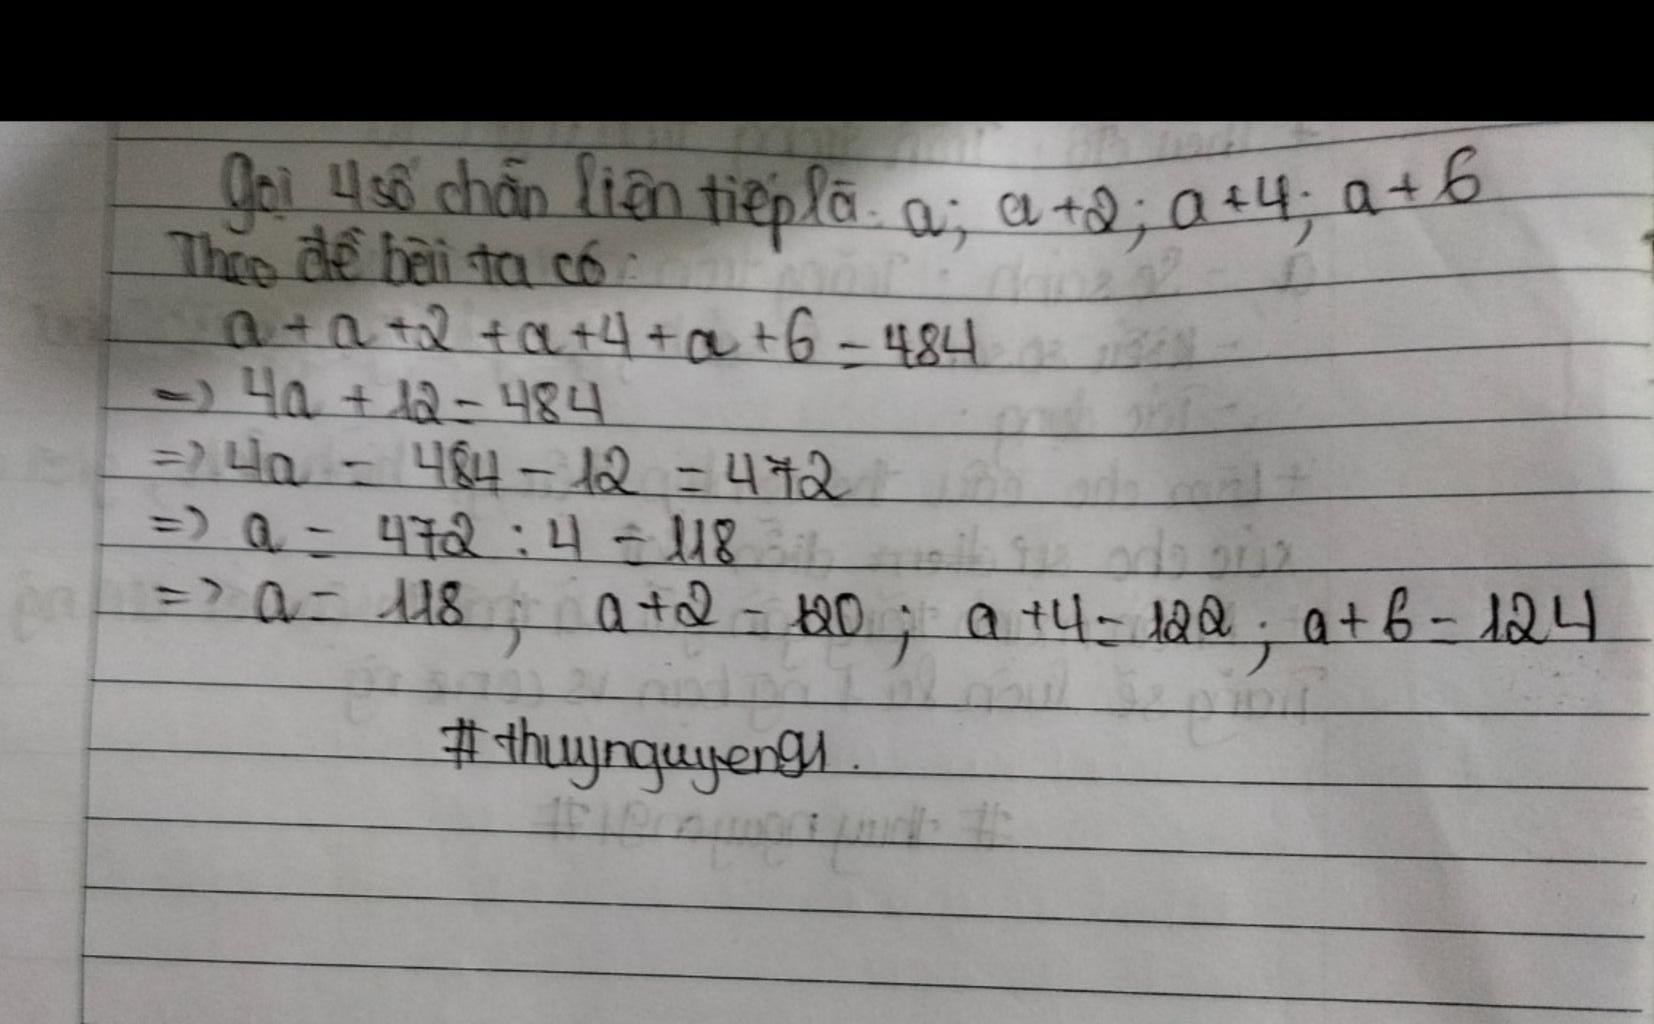 Gọi 4 số chẵn liên tiếp là: a; a+2; a+4; a+6
Theo đề bài ta có:
a + a + 2 + a + 4 + a + 6 = 484
=> 4a + 12 = 484
=> 4a = 484 - 12 = 472
=> a = 472 : 4 = 118
=> a = 118 ; a + 2 = 120 ; a + 4 = 122 ; a + 6 = 124
#thuynguyen91.